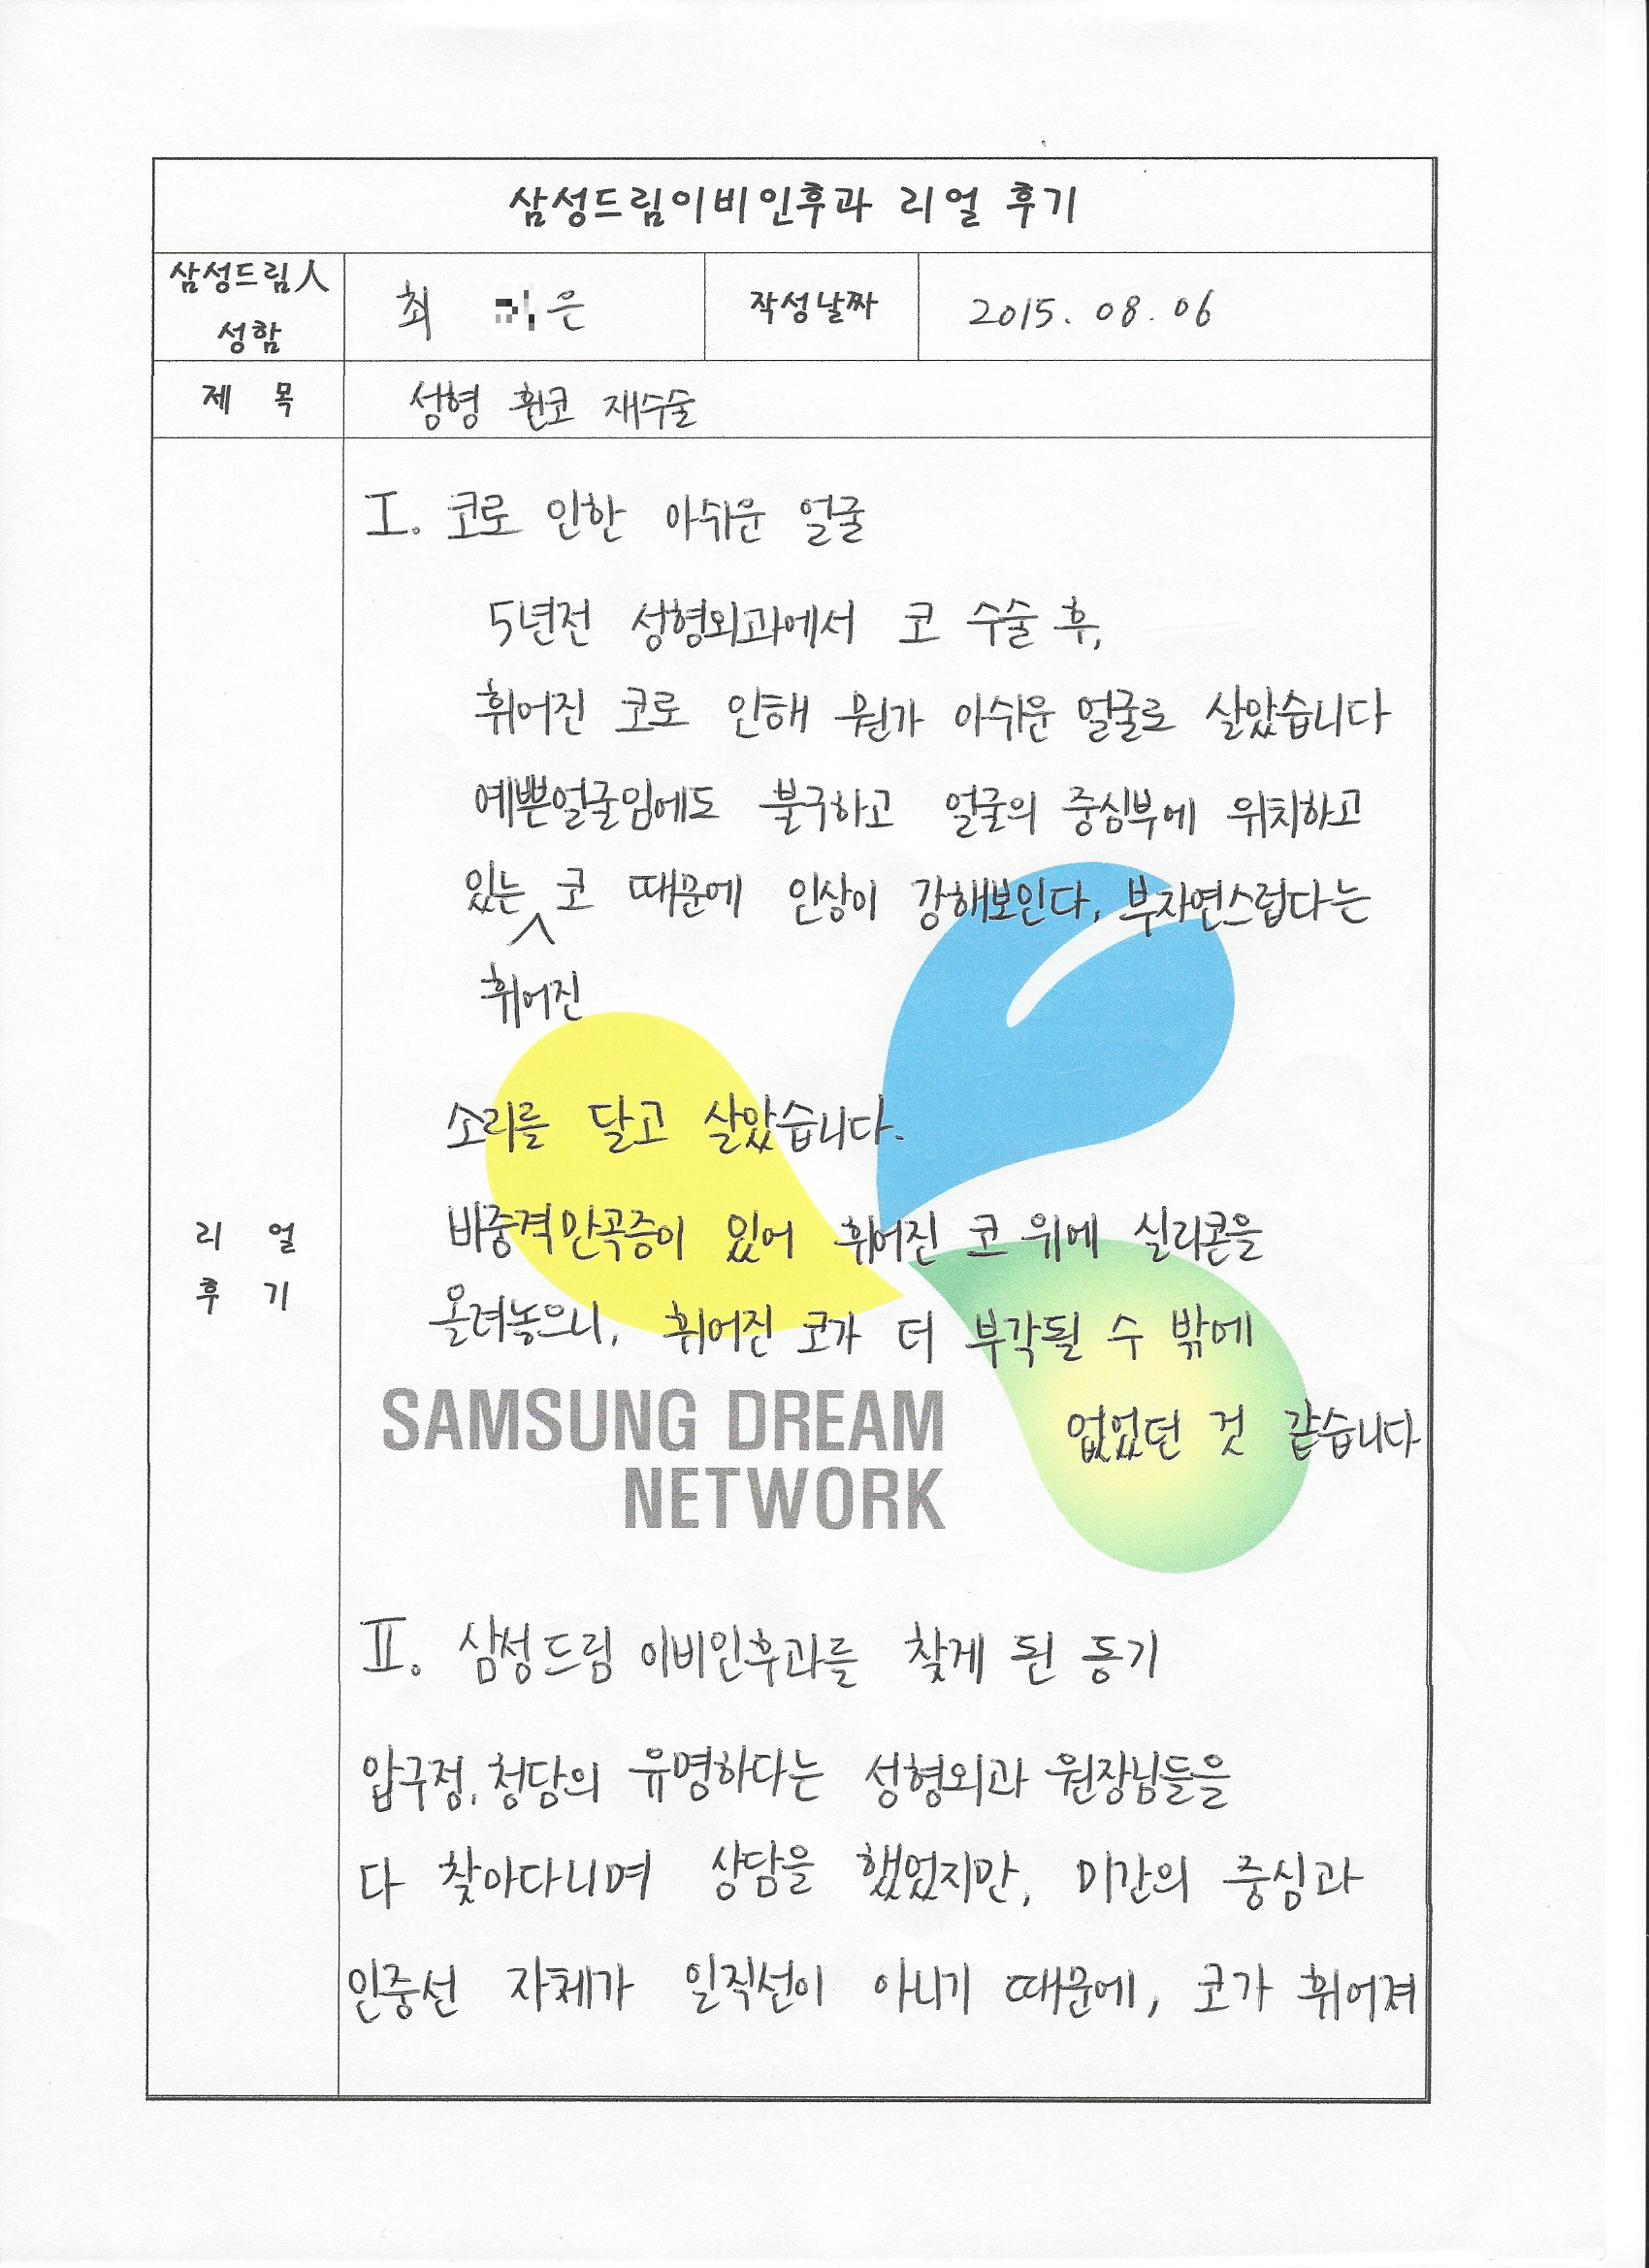 삼성드림이비인후과 리얼 후기
삼성드림人
성함
최 은
작성날짜
2015. 08. 06
제 목
성형 휜코 재수술
리 얼
후 기
I. 코로 인한 아쉬운 얼굴
5년전 성형외과에서 코 수술 후,
휘어진 코로 인해 뭔가 아쉬운 얼굴로 살았습니다
예쁜얼굴임에도 불구하고 얼굴의 중심부에 위치하고
있는 코 때문에 인상이 강해보인다, 부자연스럽다는
휘어진
소리를 달고 살았습니다.
비중격만곡증이 있어 휘어진 코 위에 실리콘을
올려놓으니, 휘어진 코가 더 부각될 수 밖에
없었던 것 같습니다
SAMSUNG DREAM
NETWORK
II. 삼성드림 이비인후과를 찾게 된 동기
압구정, 청담의 유명하다는 성형외과 원장님들을
다 찾아다니며 상담을 했었지만, 미간의 중심과
인중선 자체가 일직선이 아니기 때문에, 코가 휘어져